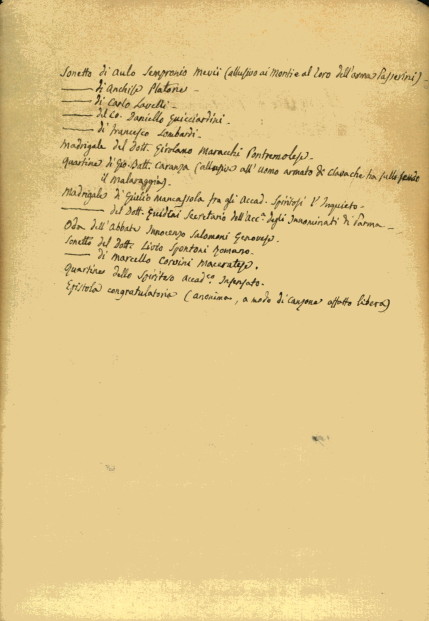 Sonetto di Aulo Sempronio Mevii (allusivo ai Monti e al Toro dell'arma Passerini) -
—— di Anchise Platone
—— di Carlo Lavelli -
—— del Co. Daniello Guicciardini
—— di Francesco Lombardi -
Madrigale del Dott. Girolamo Maracchi Pontremolese
Quartine di Gio: Dott. Caranza (allusivo all' Uomo armato di Clava che ha sullo scudo
il Malaraggia) -
Madrigale di Giulio Mancassola fra gli Accad. Spiritosi l' Inquieto -
—— del Dott. Guidoni Secretario dell'Acc.ª degli Innominati di Parma -
Oda dell'Abbate Innocenzo Salomoni Genovese
Sonetto del Dott. Livio Spontoni Romano -
—— di Marcello Corvini Maceratese.
Quartine dello Spiritoso Accad.co Insensato.
Epistola congratulatoria (anonima, a modo di canzone affatto libera)